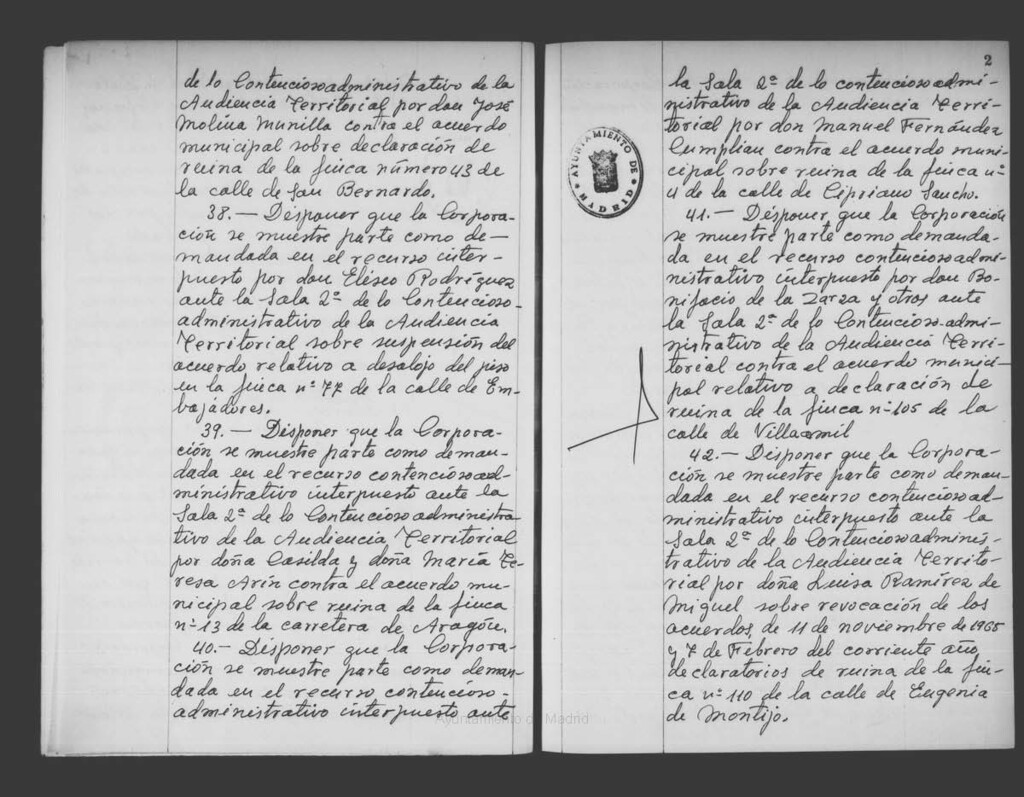 de lo Contenciosoadministrativo de la
Audiencia Territorial por don José
Molina Munilla contra el acuerdo
municipal sobre declaración de
ruina de la finca número 43 de
la calle de San Bernardo.
38.— Disponer que la Corpora-
ción se muestre parte como de-
mandada en el recurso inter-
puesto por don Eliseo Rodríguez
ante la Sala 2ª de lo Contencioso-
administrativo de la Audiencia
Territorial sobre suspensión del
acuerdo relativo a desalojo del piso
en la finca nº 77 de la calle de Em-
bajadores.
39.— Disponer que la Corpora-
ción se muestre parte como deman-
dada en el recurso contenciosoad-
ministrativo interpuesto ante la
Sala 2ª de lo Contenciosoadministra-
tivo de la Audiencia Territorial
por doña Casilda y doña María Te-
resa Arín contra el acuerdo mu-
nicipal sobre ruina de la finca
nº 13 de la carretera de Aragón.
40.— Disponer que la Corpora-
ción se muestre parte como deman-
dada en el recurso contencioso-
administrativo interpuesto ante
Ayuntamiento de Madrid
2
AYUNTAMIENTO DE MADRID
la Sala 2ª de lo contenciosoadmi-
nistrativo de la Audiencia Terri-
torial por don Manuel Fernández
Cumplian contra el acuerdo muni-
cipal sobre ruina de la finca nº
4 de la calle de Cipriano Sancho.
41.— Disponer que la Corporación
se muestre parte como demanda-
da en el recurso contenciosoadmi-
nistrativo interpuesto por don Bo-
nifacio de la Zarza y otros ante
la Sala 2ª de lo Contencioso-admi-
nistrativo de la Audiencia Terri-
torial contra el acuerdo munici-
pal relativo a declaración de
ruina de la finca nº 105 de la
calle de Villaamil
42.— Disponer que la Corpora-
ción se muestre parte como deman-
dada en el recurso contenciosoad-
ministrativo interpuesto ante la
Sala 2ª de lo Contenciosoadminis-
trativo de la Audiencia Territo-
rial por doña Luisa Ramírez de
Miguel sobre revocación de los
acuerdos, de 11 de noviembre de 1965
y 7 de Febrero del corriente año,
declaratorios de ruina de la fin-
ca nº 110 de la calle de Eugenia
de Montijo.